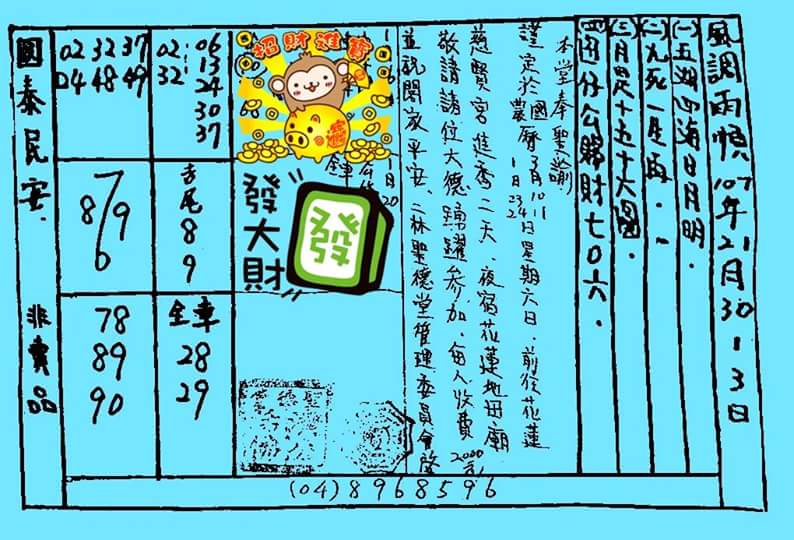 風調雨順 107年 21月30-13日
(一)五湖四海日月明.
(二)九死一生
(三)月光十五十六圓.
四田仔公賜財七0六.
本堂奉聖諭
謹定於國曆3月10.11
農曆1月23.24日星期六日.前往花蓮
慈賢宮進香二天.夜宿花蓮地母廟
敬請諸位大德踴躍參加.每人收費2000元
並祝閤家平安.二林聖德堂管理委員會啓
招財進寶
發大財
發
02 32
06
13
24
30
37
吉尾
8
9
全車
28
29
02 32 37
04 48 49
7
8 9
0
78
89
90
國泰民安.
非賣品
(04)8968596